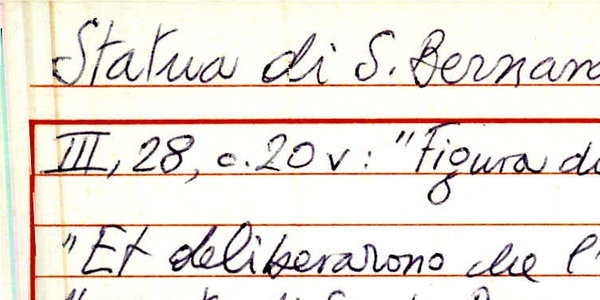 Statua di S. Bernar
III, 28, c. 20 v: "Figura d
"Et deliberarono che l'